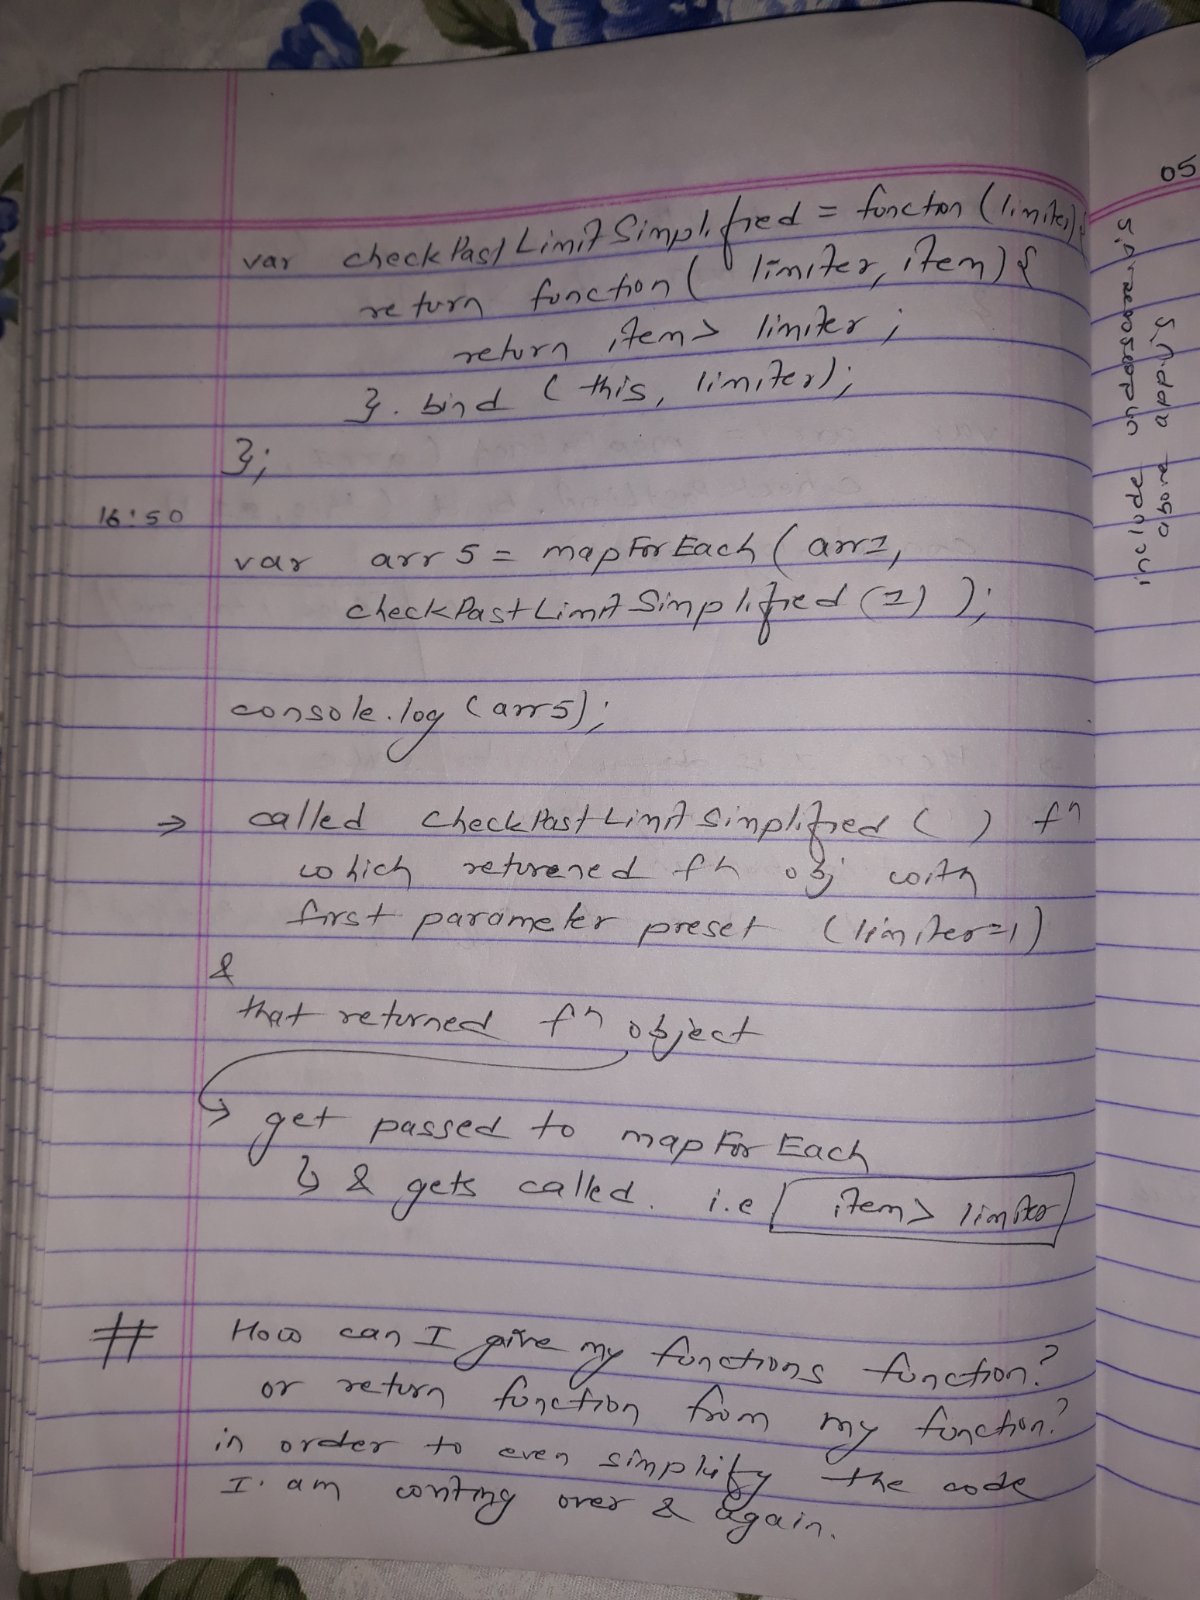 var checkPastLimitSimplified = function (limiter) {
return function ( limiter, item) {
return item > limiter ;
} . bind ( this, limiter);
};
16:50
var arr 5 = mapForEach ( arr1,
checkPastLimitSimplified (1) );
console.log (arr5);
→ called checkPastLimitSimplified ( ) fn
which returened fn obj with
first parameter preset (limiter=1)
&
that returned fn object
get passed to mapForEach
↳ & gets called. i.e item > limiter
# How can I give my functions function?
or return function from my function?
in order to even simplify the code
I. am wrting over & again.
05
include underscore.js
above app.js